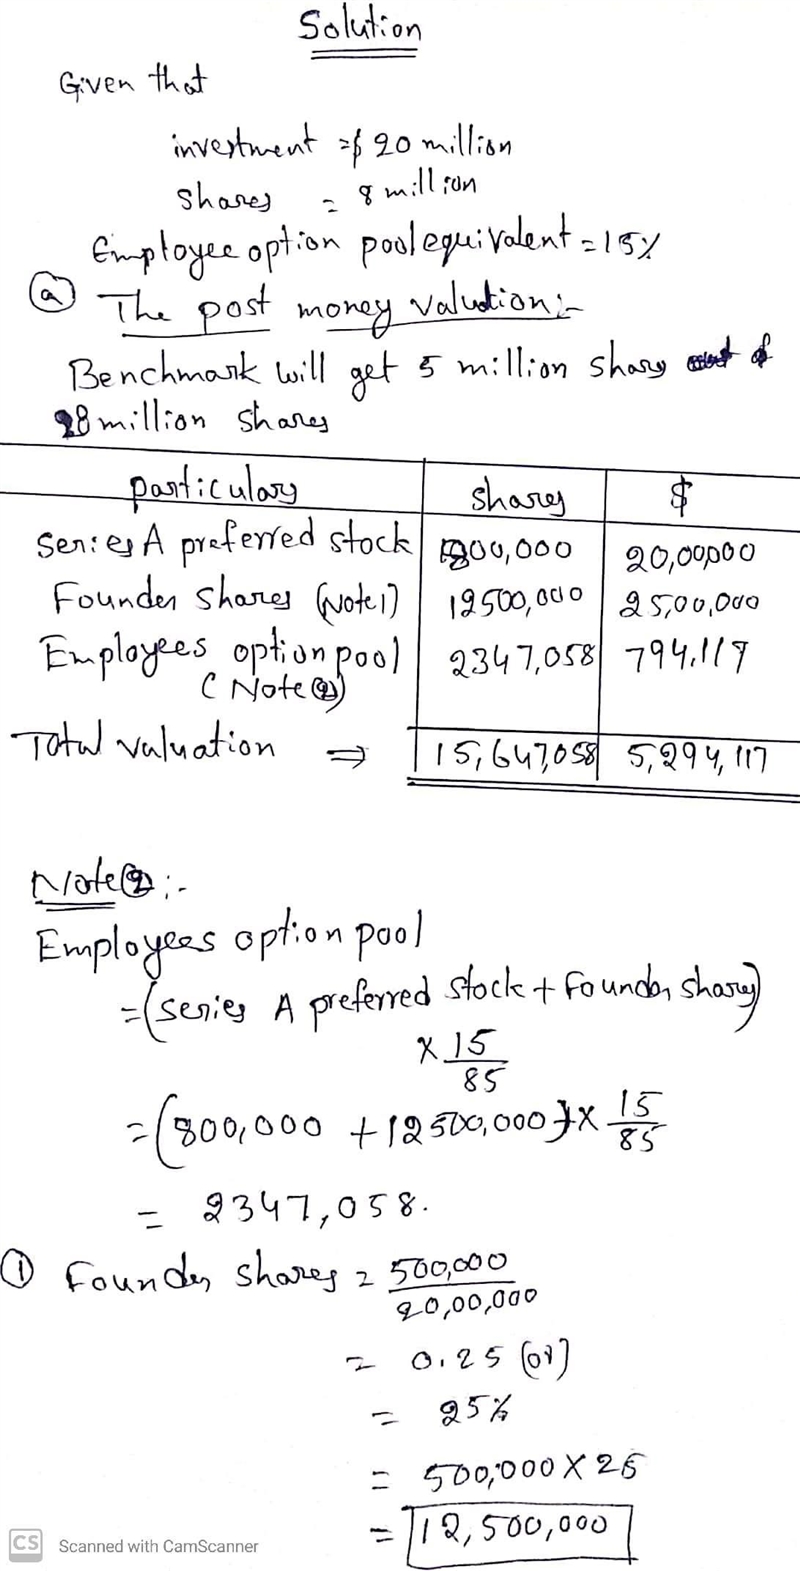 Solution
Given that
investment =$ 20 million
Shares = 8 million
Employee option pool equivalent = 15%
(a) The post money valution:-
Benchmark will get 5 million shares of
28 million shares
particulars shares $
Series A preferred stock 800,000 20,00,000
Founder shares (Note 1) 12500,000 25,00,000
Employees option pool 2347,058 794,117
(Note 2)
Total valuation ⇒ 15,647,058 5,294,117
Note (2) :-
Employees option pool
= (series A preferred stock + Founder shares)
× 15/85
= (800,000 + 12500,000) × 15/85
= 2347,058.
(1) Founder shares = 500,000/20,00,000
= 0.25 (or)
= 25%
= 500,000 × 25
= 12,500,000
CS Scanned with CamScanner